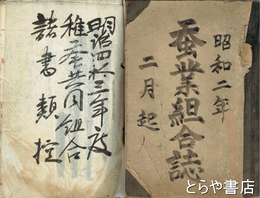 昭和二年
蚕業組合誌
二月起
明治四拾三年度
稚蚕共同組合
諸書類控
とらや書店